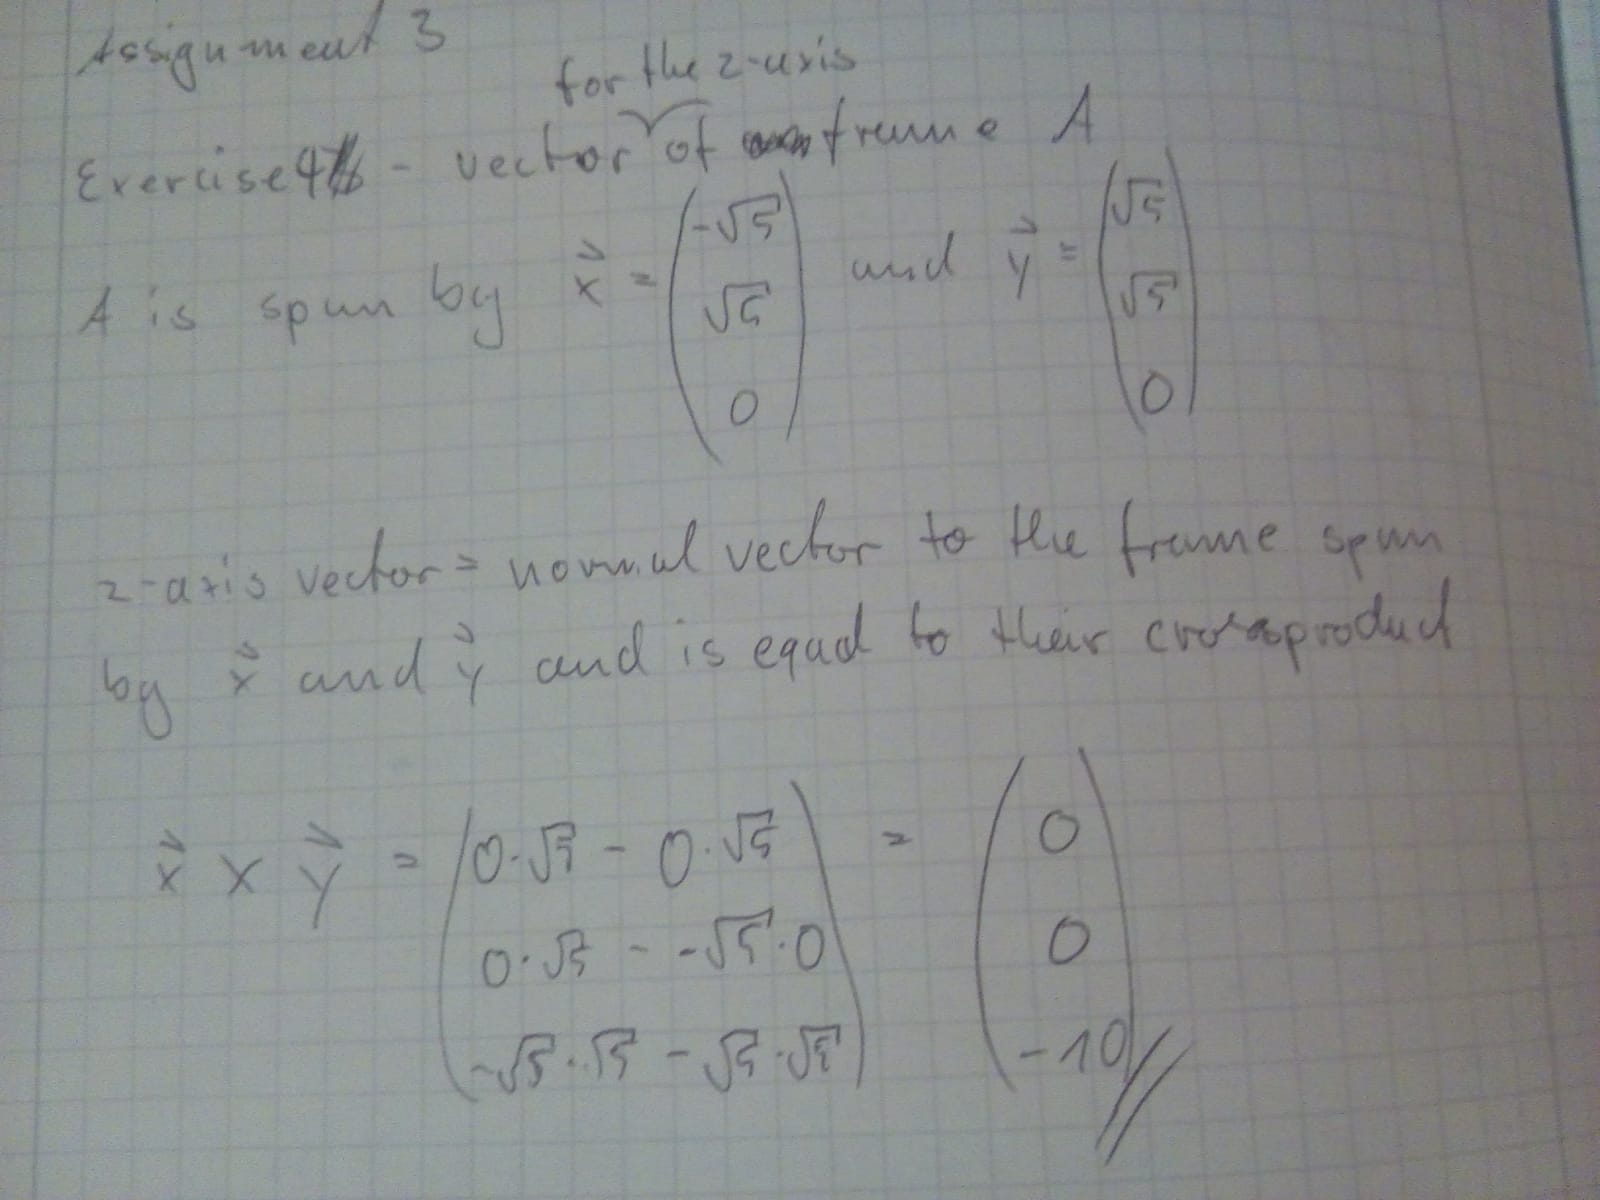 Assignment 3
for the z-axis
Exercise 4 - vector of frame A
A is spun by x⃗ = (-√5 √5 0) and y⃗ = (√5 √5 0)
z-axis vector = normal vector to the frame spun
by x⃗ and y⃗ and is equal to their crossproduct
x⃗ x y⃗ = (0·√5 - 0·√5 = (0
0·√5 - -√5·0 0
-√5·√5 - √5·√5) -10)